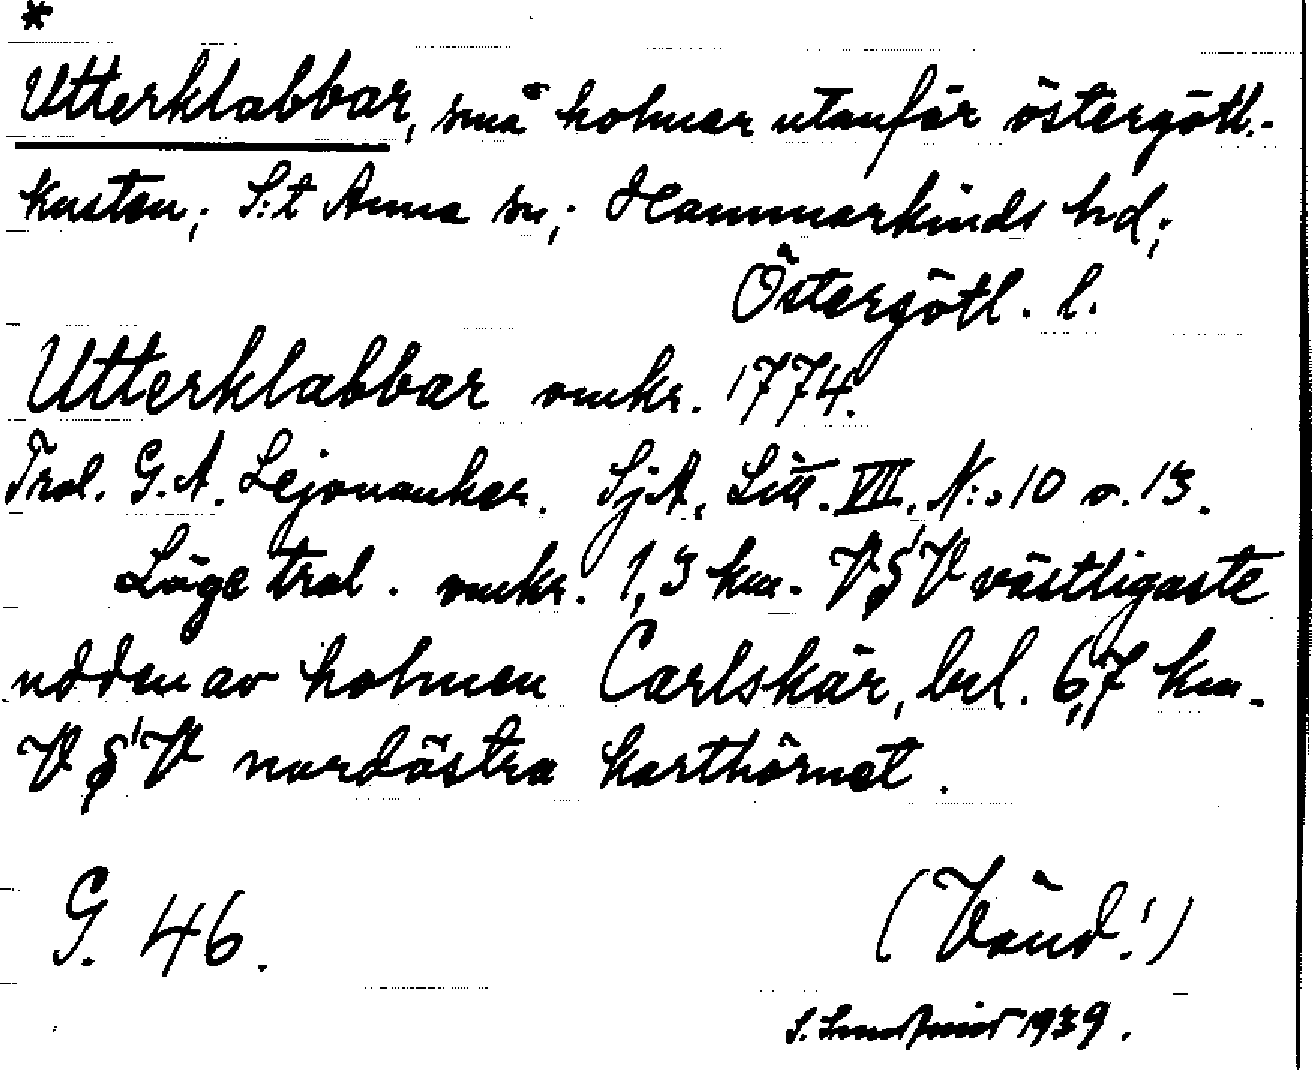 *
Utterklabbar, små holmar utanför östergötl.-
kusten; S:t Anna sn; Hammarkinds hd;
Östergötl. l.
Utterklabbar omkr. 1774.
Trol. G.A. Lejonanker. SjA, Litt. VII. N:o 10 o. 13.
Läge trol. omkr. 1,3 km. V§'V västligaste
udden av holmen Carlskär, bel. 6,7 km.
V§'V nordöstra karthörnet.
G. 46.
(Vänd!)
S. 1939.